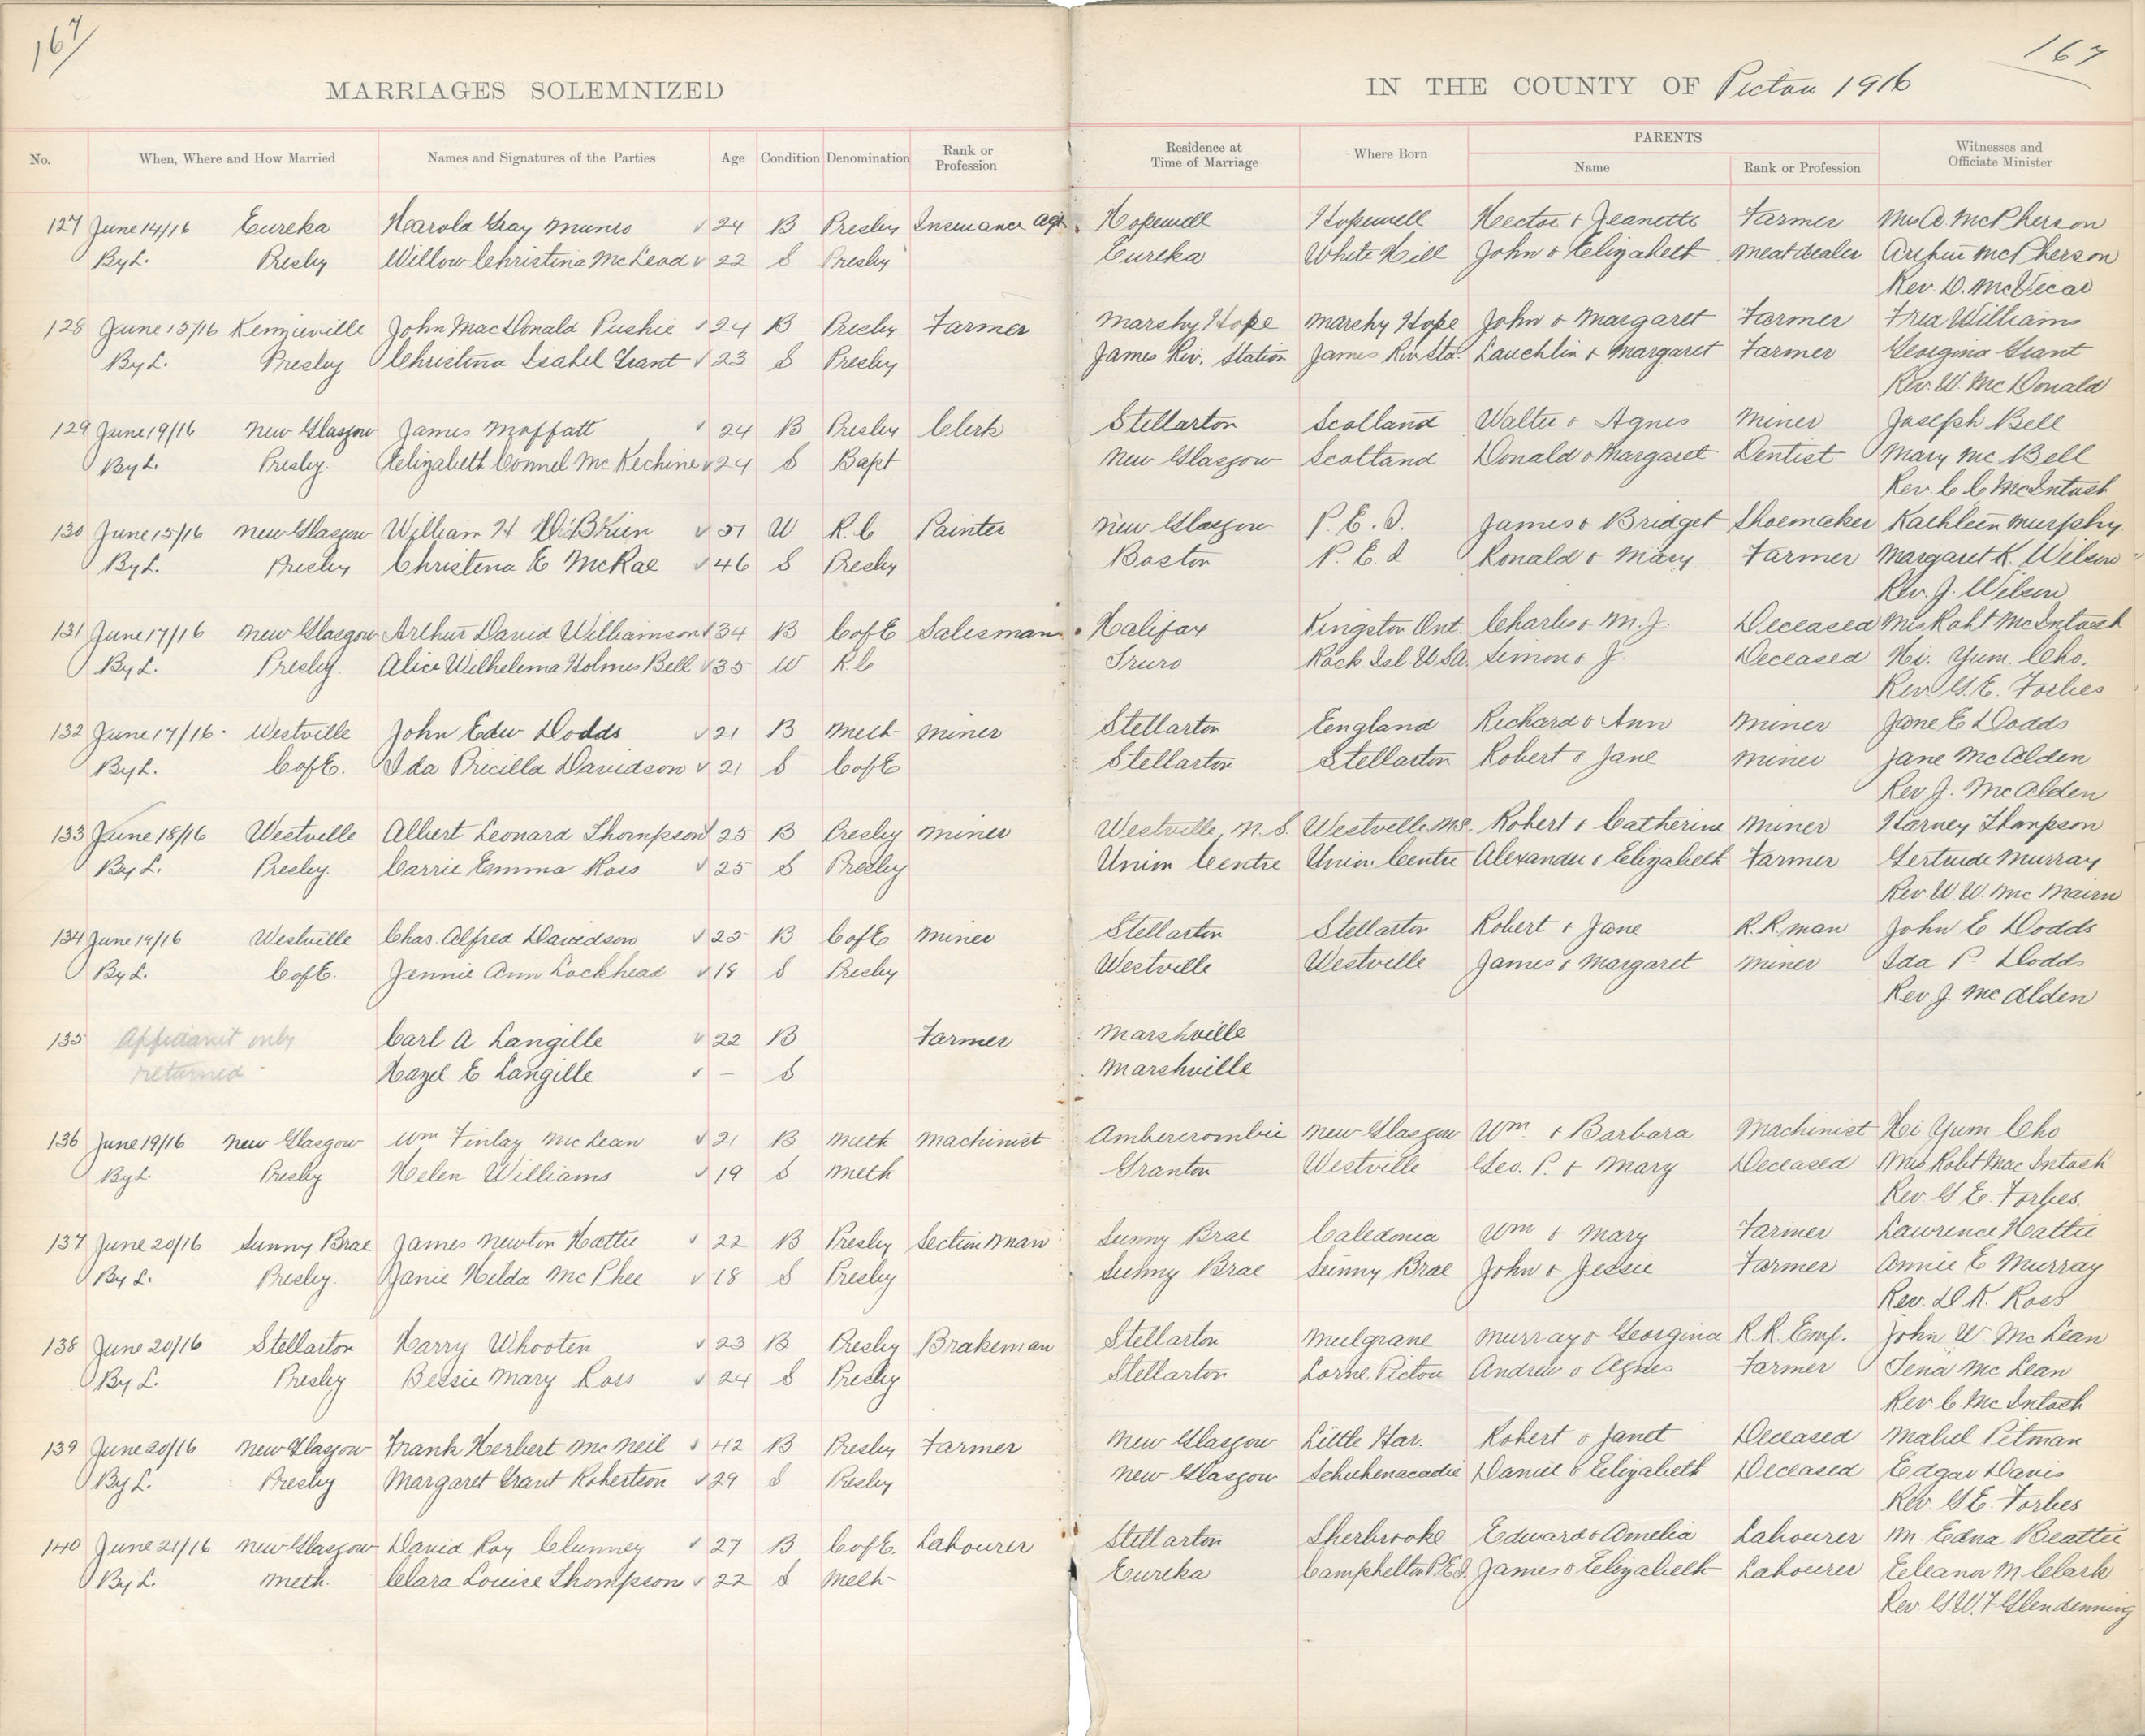 167 167
MARRIAGES SOLEMNIZED IN THE COUNTY OF Pictou 1916
No. When, Where and How Married Names and Signatures of the Parties Age Condition Denomination Rank or Profession Residence at Time of Marriage Where Born PARENTS Name Rank or Profession Witnesses and Officiate Minister
127 June 14/16 Eureka Harold Gray Munro 24 B Presby Insurance Agt. Hopewell Hopewell Hector & Jeanette Farmer Mrs A. McPherson
By L. Presby Willow Christina McLeod 22 S Presby Eureka White Hill John & Elizabeth Meat dealer Arthur McPherson
Rev. D. McVicar
128 June 15/16 Kenzieville John MacDonald Pushie 24 B Presby Farmer Marshy Hope Marshy Hope John & Margaret Farmer Fred Williams
By L. Presby Christina Isabel Grant 23 S Presby James Riv. Station James Riv Sta. Lauchlin & Margaret Farmer Georgina Grant
Rev. W. McDonald
129 June 19/16 New Glasgow James Moffatt 24 B Presby Clerk Stellarton Scotland Walter & Agnes Miner Joseph Bell
By L. Presby. Elizabeth Connel McKechine 24 S Bapt New Glasgow Scotland Donald & Margaret Dentist Mary Mc Bell
Rev. C C McIntosh
130 June 15/16 New Glasgow William H. O'Brien 51 W R.C Painter New Glasgow P.E.I. James & Bridget Shoemaker Kathleen Murphy
By L. Presby Christena E McRae 46 S Presby Boston P.E.I Ronald & Mary Farmer Margaret K. Wilson
Rev. J. Wilson
131 June 17/16 New Glasgow Arthur David Williamson 34 B C of E Salesman Halifax Kingston Ont. Charles & M.J. Deceased Mrs Robt McIntosh
By L. Presby. Alice Wilhelema Holmes Bell 35 W R.C Truro Rock Isl. USA. Simon & J. Deceased Hi. Yum. Cho.
Rev G.E. Forbes
132 June 17/16 Westville John Edw Dodds 21 B Meth Miner Stellarton England Richard & Ann Miner Jane E Dodds
By L. C of E. Ida Pricilla Davidson 21 S C of E Stellarton Stellarton Robert & Jane Miner Jane McAlden
Rev J. McAlden
133 June 18/16 Westville Albert Leonard Thompson 25 B Presby Miner Westville, N.S. Westville N.S. Robert & Catherine Miner Harney Thompson
By L. Presby. Carrie Emma Ross 25 S Presby Union Centre Union Centre Alexander & Elizabeth Farmer Gertrude Murray
Rev W.W. Mc Nairn
134 June 19/16 Westville Chas. Alfred Davidson 25 B C of E Miner Stellarton Stellarton Robert & Jane R.R man John E Dodds
By L. C of E. Jennie Ann Lockhead 18 S Presby Westville Westville James & Margaret Miner Ida P. Dodds
Rev J. McAlden
135 Affidavit only Carl A Langille 22 B Farmer Marshville
returned Hazel E Langille – S Marshville
136 June 19/16 New Glasgow Wm Finlay McLean 21 B Meth Machinist Ambercrombie New Glasgow Wm. & Barbara Machinist Hi Yum Cho
By L. Presby Helen Williams 19 S Meth Granton Westville Geo. P. & Mary Deceased Mrs Robt MacIntosh
Rev. G E. Forbes.
137 June 20/16 Sunny Brae James Newton Hattie 22 B Presby Section Man Sunny Brae Caledonia Wm & Mary Farmer Lawrence Hattie
By L. Presby. Janie Hilda McPhee 18 S Presby Sunny Brae Sunny Brae John & Jessie Farmer Annie E Murray
Rev. D.K. Ross
138 June 20/16 Stellarton Harry Whooten 23 B Presby Brakeman Stellarton Mulgrane Murray & Georgina R.R. Emp. John W. McLean
By L. Presby Bessie Mary Ross 24 S Presby Stellarton Lorne. Pictou Andrew & Agnes Farmer Tena McLean
Rev C. McIntosh
139 June 20/16 New Glasgow Frank Herbert McNeil 42 B Presby Farmer New Glasgow Little Har. Robert & Janet Deceased Mabel Pitman
By L. Presby Margaret Grant Robertson 29 S Presby New Glasgow Schubenacadie Daniel & Elizabeth Deceased Edgar Davis
Rev. G E. Forbes
140 June 21/16 New Glasgow David Roy Clunney 27 B C of E. Labourer Stellarton Sherbrooke Edward & Amelia Labourer M. Edna Beattie
By L. Meth. Clara Louise Thompson 22 S Meth Eureka Campbelton P.E.I. James & Elizabeth Labourer Eleanor M Clark
Rev. G.W.F Glendenning